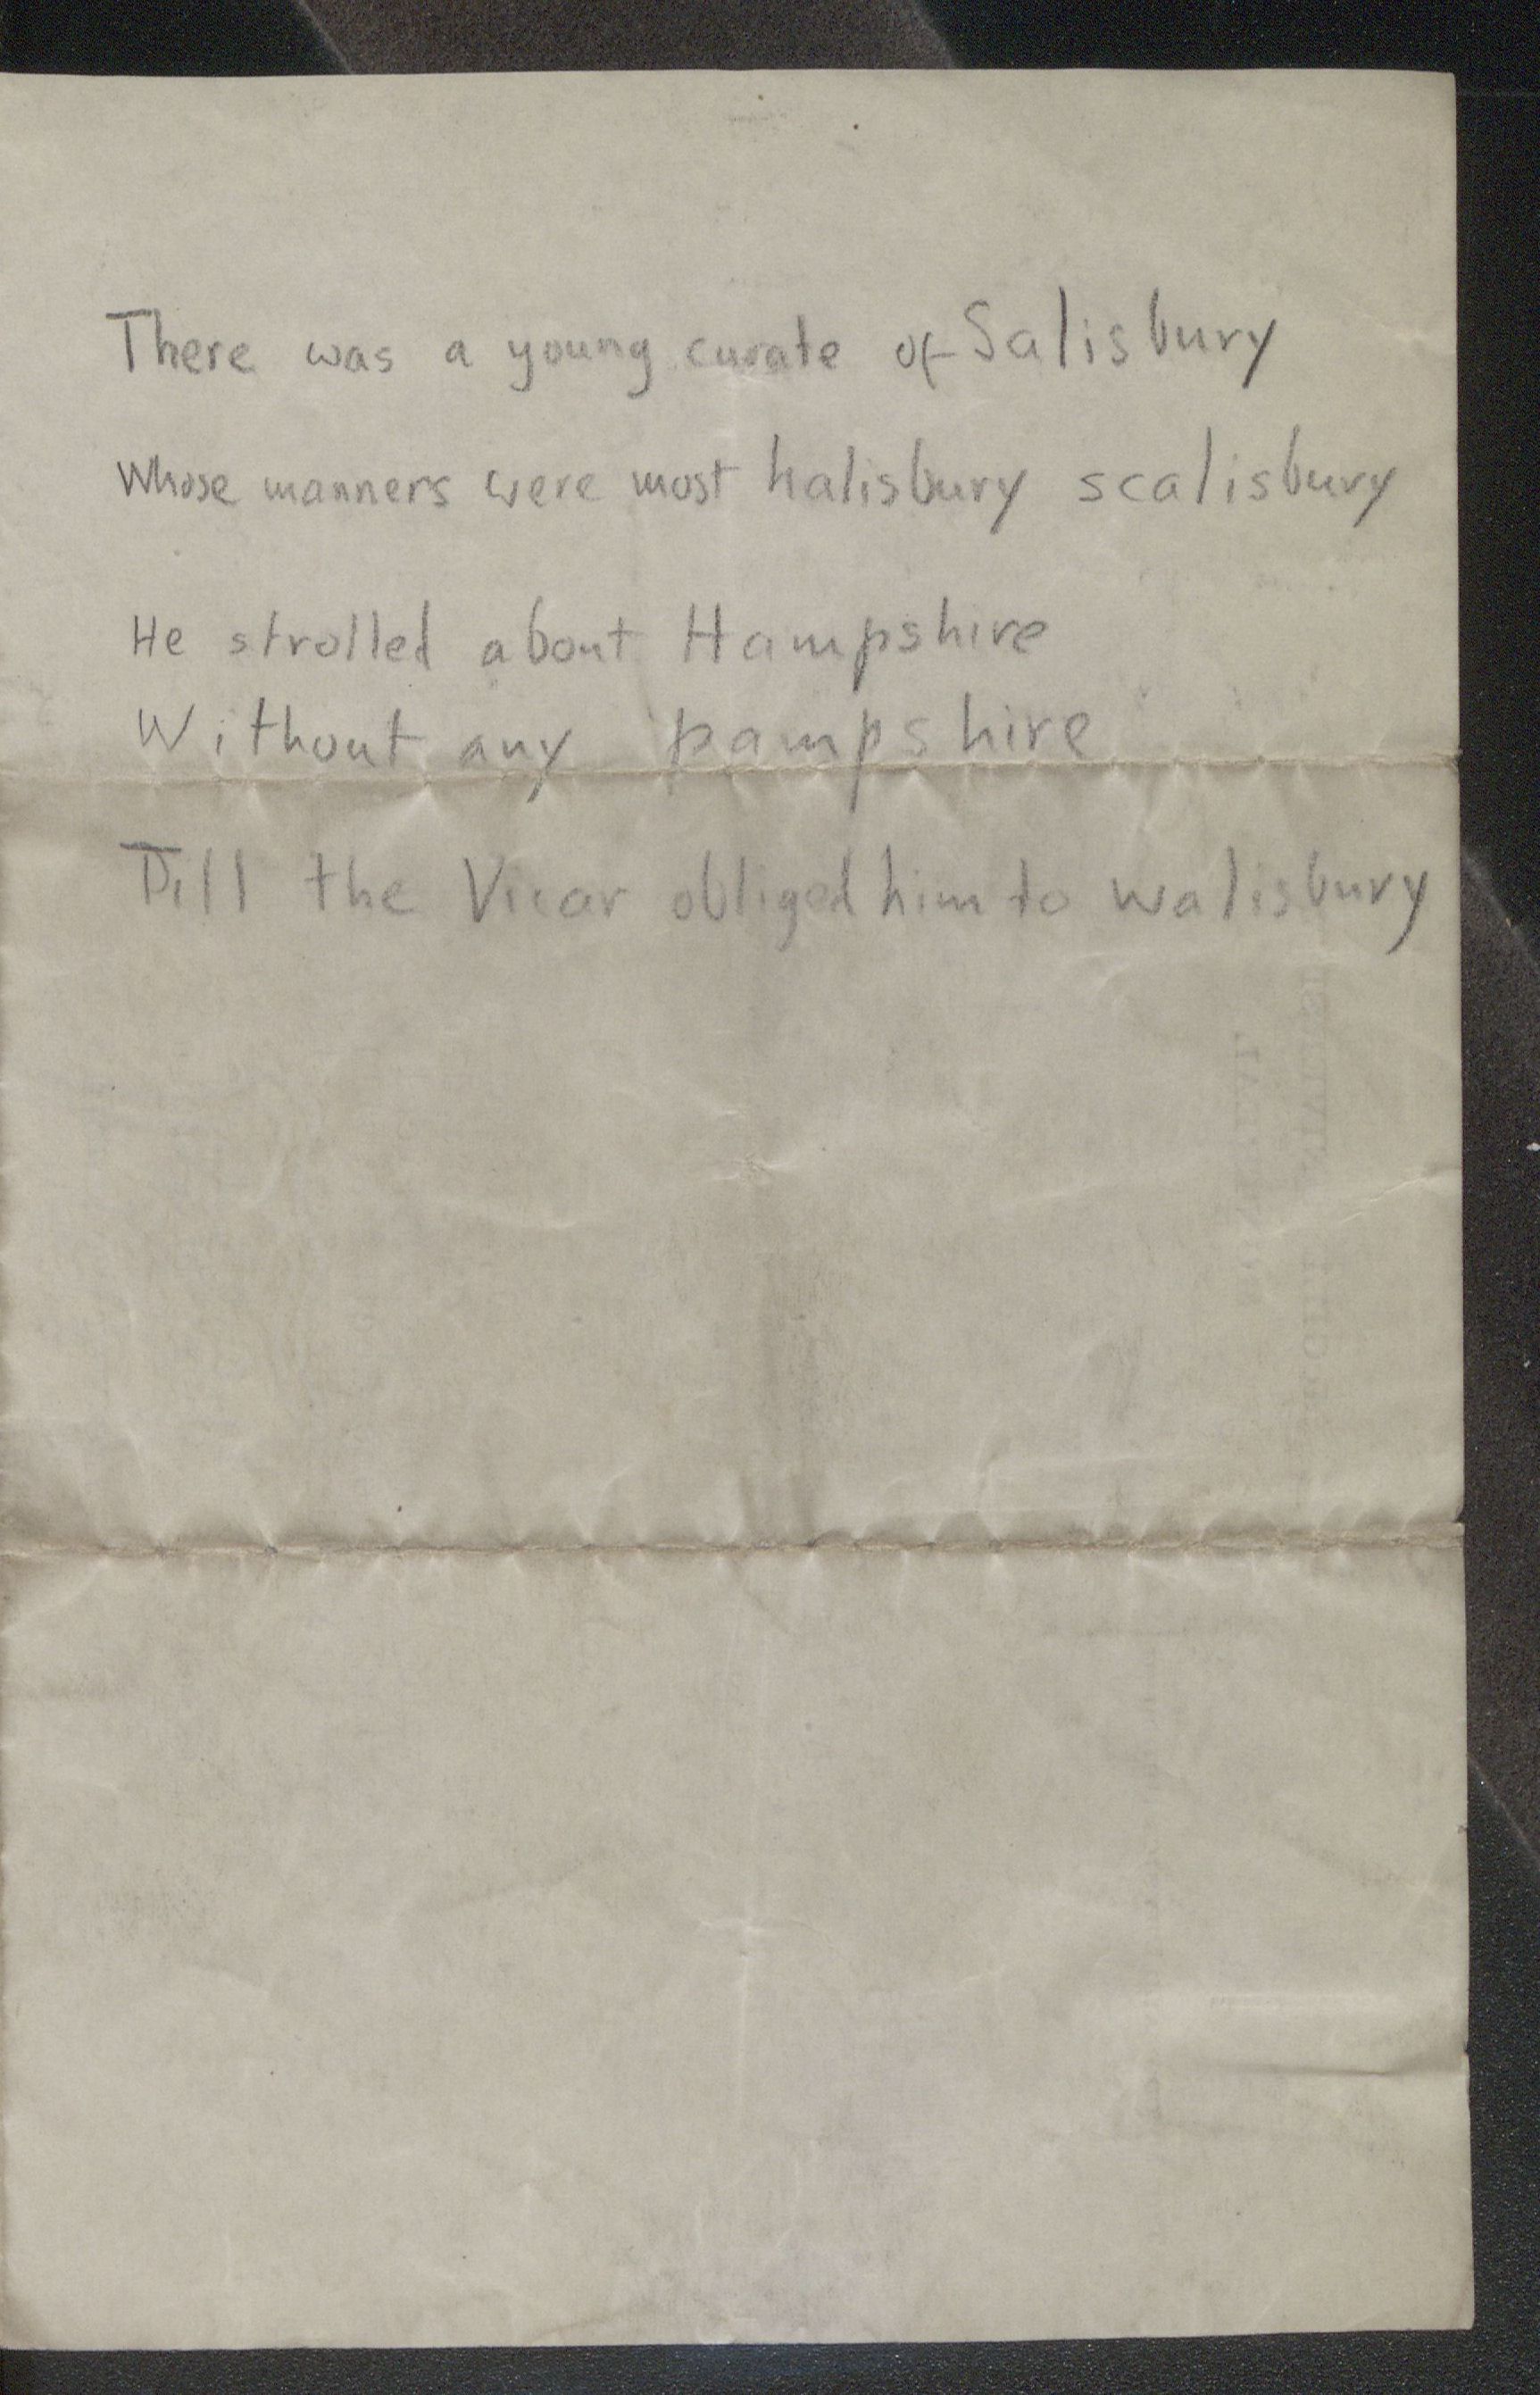 There was a young curate of Salisbury
Whose manners were most halisbury scalisbury
He strolled about Hampshire
Without any pampshire
Till the Vicar obliged him to walisbury